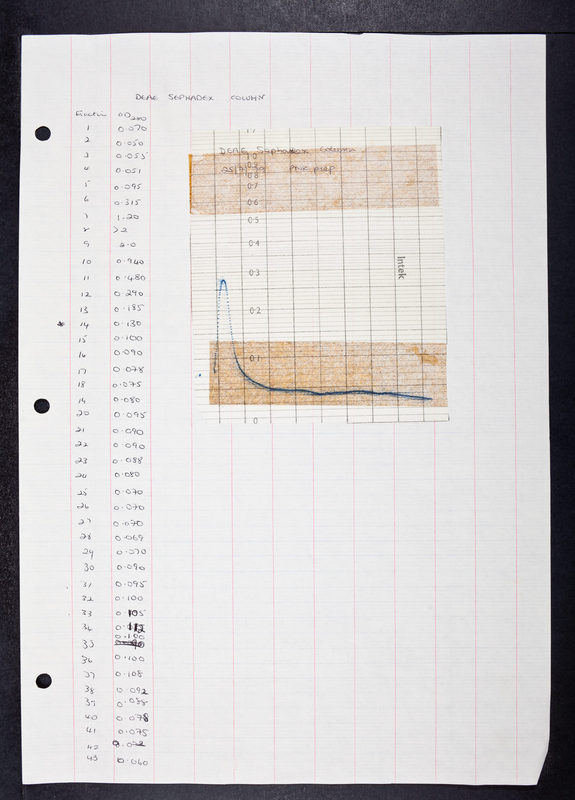 DEAE SEPHADEX COLUMN
Fraction OD280
1 0.070
2 0.050
3 0.055
4 0.051
5 0.095
6 0.315
7 1.20
8 >2
9 2.0
10 0.940
11 0.480
12 0.290
13 0.185
* 14 0.130
15 0.100
16 0.090
17 0.078
18 0.075
19 0.080
20 0.095
21 0.090
22 0.090
23 0.088
24 0.080
25 0.070
26 0.070
27 0.070
28 0.069
29 0.070
30 0.090
31 0.095
32 0.100
33 0.105
34 0.112
35 0.100
36 0.100
37 0.108
38 0.092
39 0.088
40 0.078
41 0.075
42 0.072
43 0.060
DEAE Sephadex Column
PNK prep
1.0
0.9
0.8
0.7
0.6
0.5
0.4
0.3
0.2
0.1
0
Intek